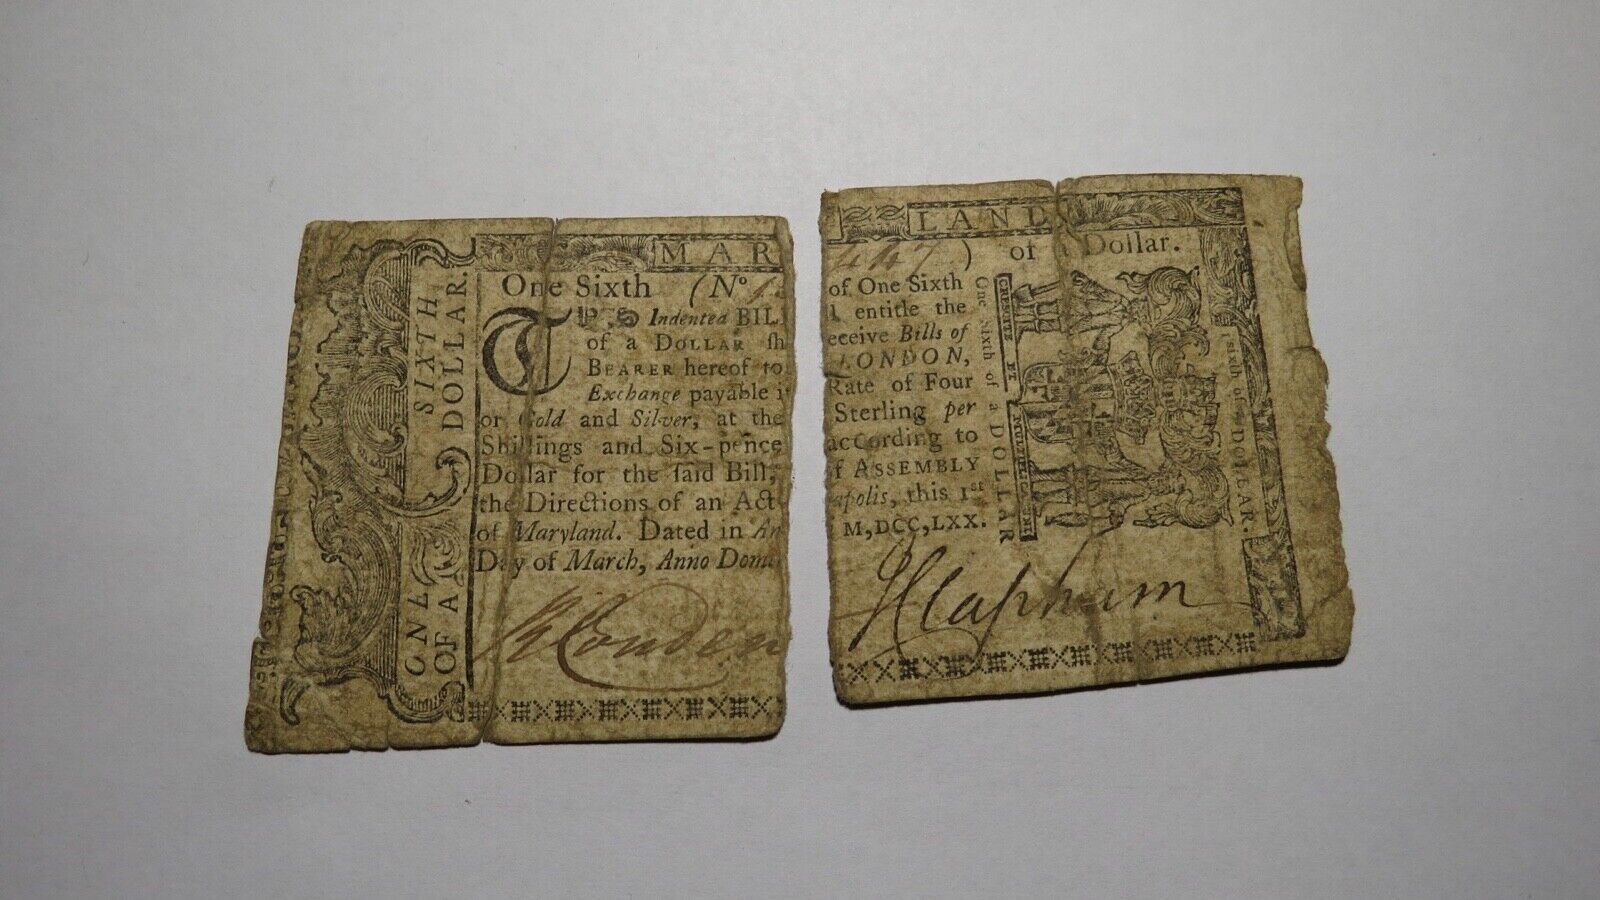 ONE SIXTH
OF A DOLLAR.
MAR
One Sixth (No 1
THIS Indented BIL
of a DOLLAR sh
BEARER hereof to
Exchange payable i
or Gold and Silver, at the
Shillings and Six-pence
Dollar for the said Bill,
the Directions of an Act
of Maryland. Dated in An
Day of March, Anno Domi
Couden
LAND
447) of a Dollar.
of One Sixth
l entitle the
eceive Bills of
LONDON,
Rate of Four
Sterling per
according to
f ASSEMBLY
apolis, this 1st
M,DCC,LXX.
One Sixth of a DOLLAR
CRESCITE ET MULTIPLICAMINI
Sixth of a DOLLAR.
J Clapham